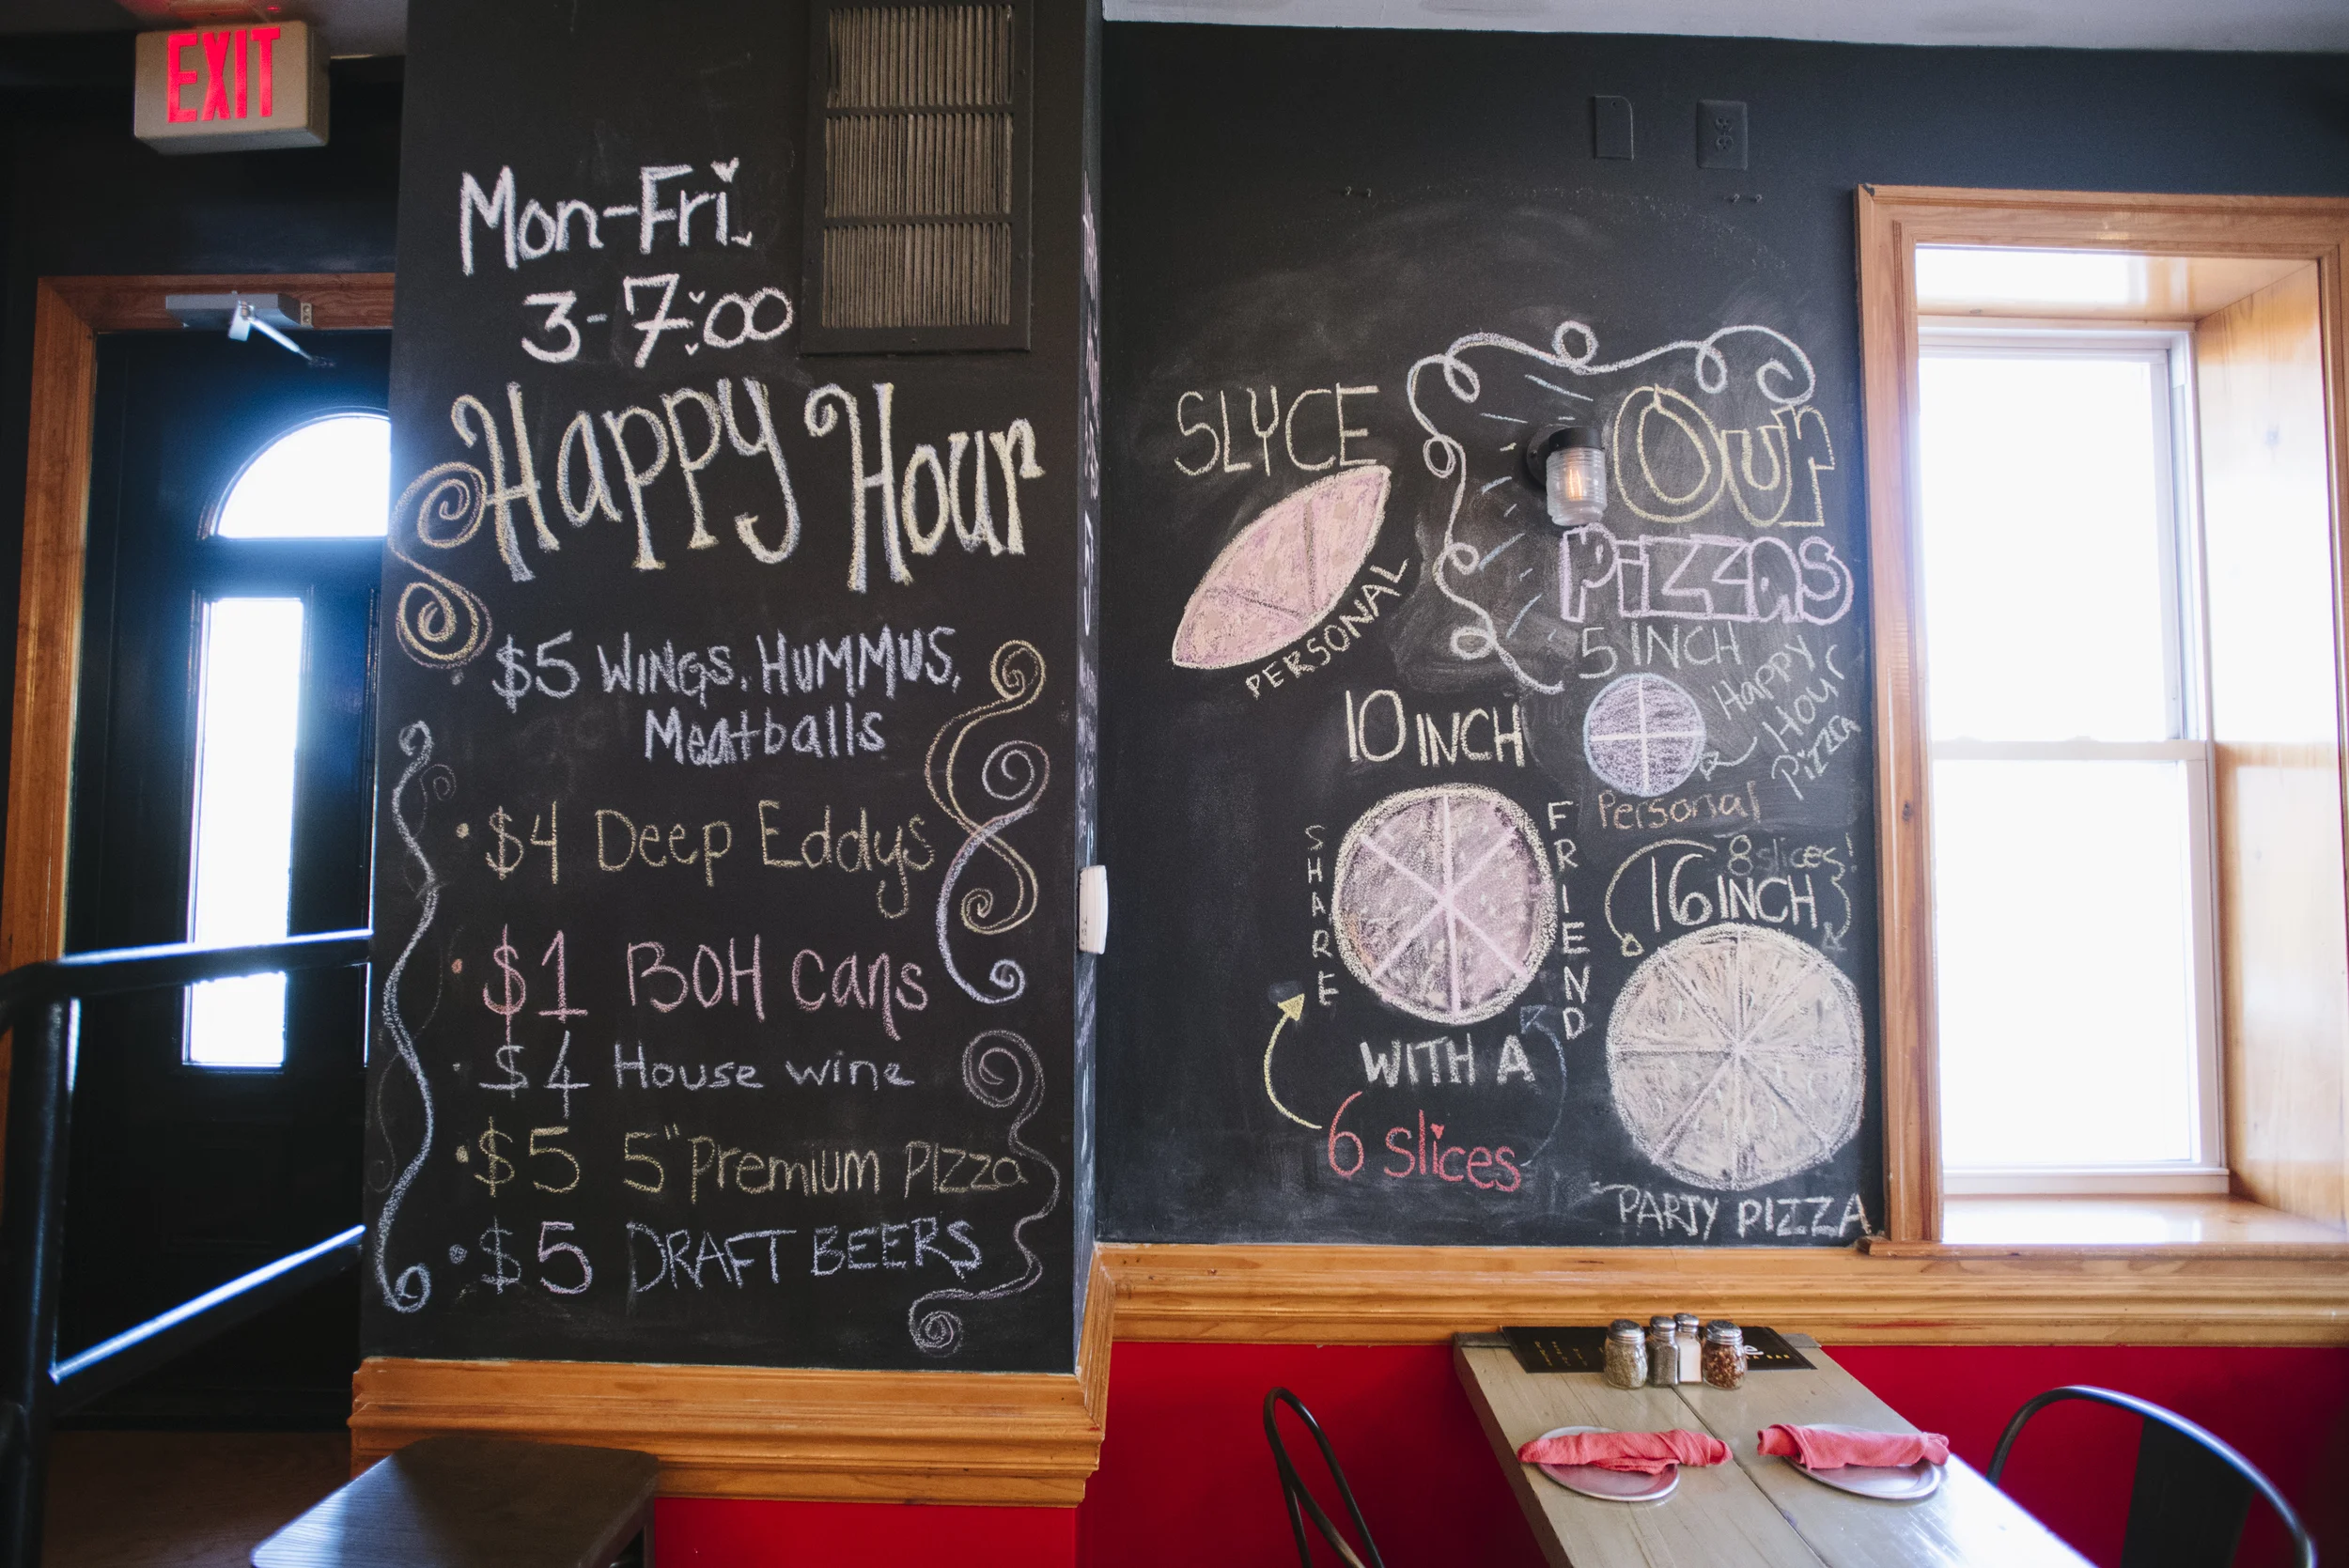 EXIT
Mon-Fri
3-7:00
Happy Hour
$5 WINGS, HUMMUS,
Meatballs
• $4 Deep Eddys
• $1 BOH cans
• $4 House wine
• $5 5" Premium Pizza
• $5 DRAFT BEERS
SLYCE
PERSONAL
Our
Pizzas
5 INCH
Happy
Hour
Pizza
Personal
10 INCH
SHARE
FRIEND
WITH A
6 Slices
8 slices!
16 INCH
PARTY PIZZA